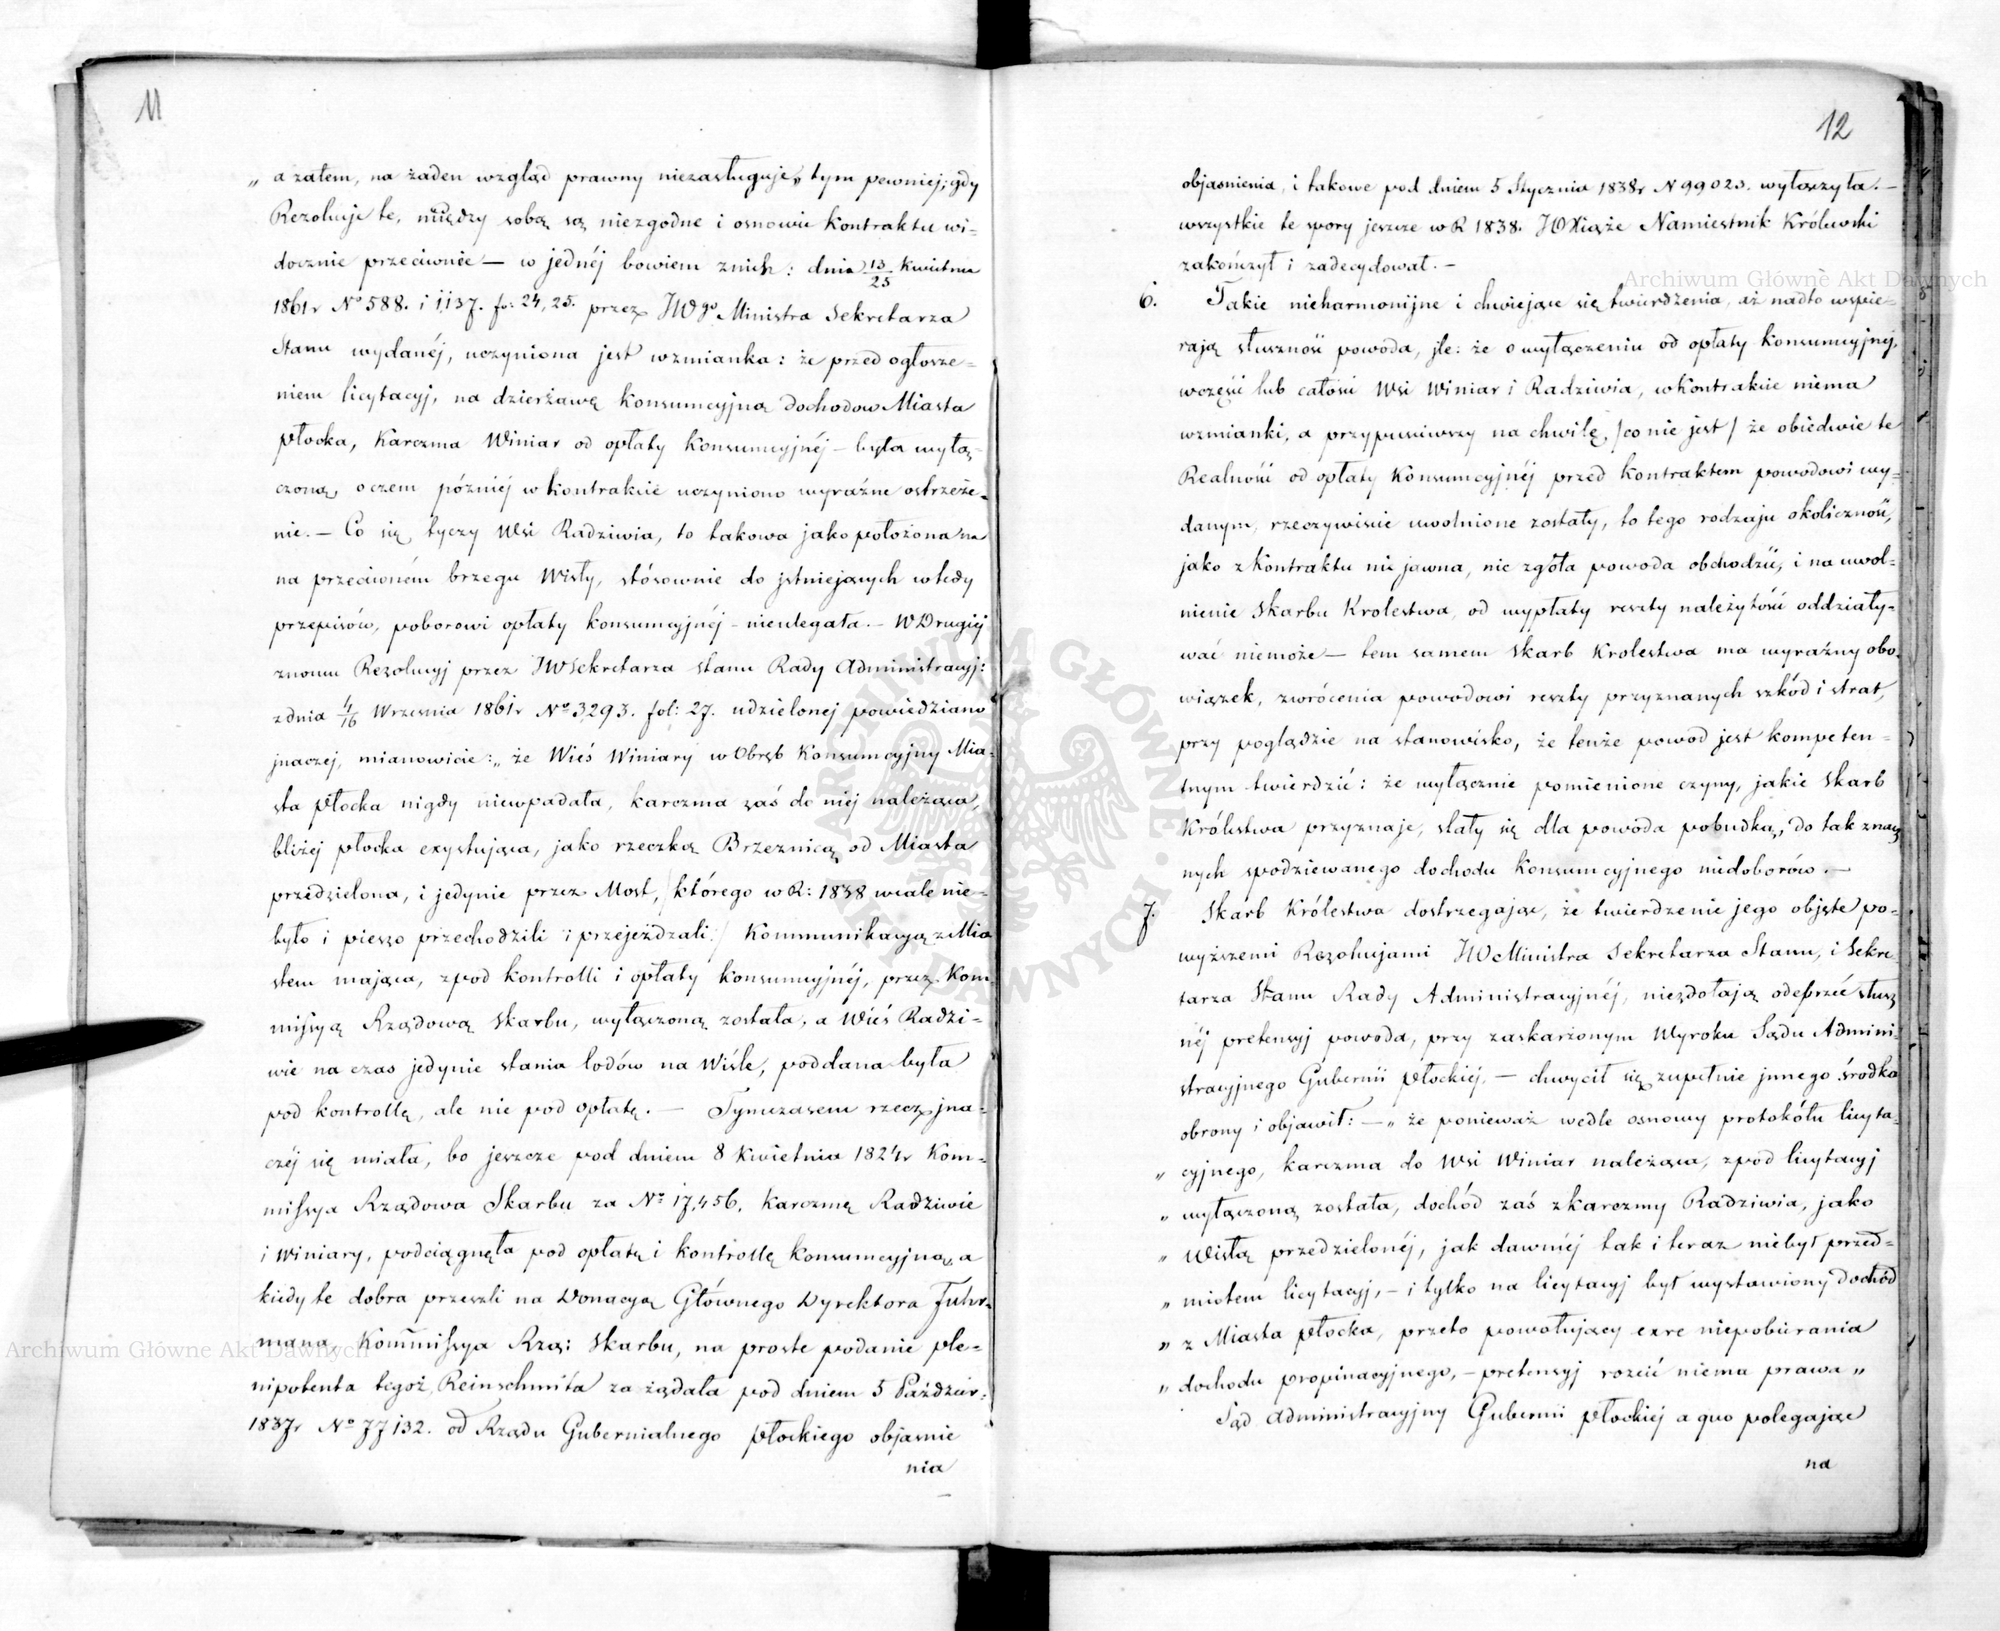 11
„ a zatem, na żaden wzgląd prawny niezasługuje, tym pewniej, gdy
Rezolucje te, między sobą są niezgodne i osnowie Kontraktu wi-
docznie przeciwnée — w jednéj bowiem znich: dnia 13/25 Kwietnia
1861r No 588. i 1137. fo: 24, 25. przez JWgo Ministra Sekretarza
Stanu wydanéj, uczyniona jest wzmianka: że przed ogłosze-
niem licytacyj, na dzierżawę Konsumcyjną dochodow Miasta
Płocka, Karczma Winiar od opłaty Konsumcyjnéj – była wyłą-
czoną, oczem późniéj w kontrakcie uczyniono wyraźne ostrzeże-
nie. — Co się tyczy Wsi Radziwia, to takowa jako położona na
na przeciwném brzegu Wisły, stósownie do jstniejących wtedy
przepisów, poborowi opłaty konsumcyjnéj – nieulegała. — W Drugiéj
znowu Rezolucyj przez JW Sekretarza stanu Rady Administracyj:
zdnia 4/16 Września 1861r No 3,293. fol: 27. udzielonej powiedziano
jnaczej, mianowicie: „ że Wieś Winiary w Obręb Konsumcyjny Mia-
sta Płocka nigdy niewpadała, karczma zaś do niéj należąca,
bliżéj Płocka exystująca, jako rzeczką Brzeznicą od Miasta
przedzielona, i jedynie przez Most, / którego w R: 1838 wcale nie-
było i pieszo przechodzili i przejeżdzali. / Kommunikacyą z Mia
stem mająca, zpod kontrolli i opłaty konsumcyjnéj, przez Kom-
missyą Rządową Skarbu, wyłączoną została, a Wieś Radzi-
wie na czas jedynie stania lodów na Wiśle, poddana była
pod kontrollę, ale nie pod opłatę. — Tymczasem rzecz jna-
czéj się miała, bo jeszcze pod dniem 8 Kwietnia 1824r Kom-
missya Rządowa Skarbu za No 17,456. Karczmę Radziwie
i Winiary, podciągnęła pod opłatę i kontrollę Konsumcyjną, a
kiedy te dobra przeszli na Donacyą Głównego Dyrektora Fuhr-
mana, Kommissya Rzą: Skarbu, na proste podanie ple-
nipotenta tegoż, Reinschmita zażądała pod dniem 5 Paździer:
1837r No 77132. od Rządu Gubernialnego Płockiego objaśnie
nia
12
objaśnienia, i takowe pod dniem 5 Stycznia 1838r N 99023. wyłączyła. —
wszystkie te spory jeszcze w R 1838. JO Xiąże Namiestnik Królewski
zakończył i zadecydował. —
6. Takie nieharmonijne i chwiejące się twierdzenia, aż nadto wspie-
rają słuszność powoda, jle: że o wyłączeniu od opłaty konsumcyjnéj,
wczęści lub całości Wsi Winiar i Radziwia, w Kontrakcie niema
wzmianki, a przypuściwszy na chwilę, / co nie jest / że obiedwie te
Realności od opłaty Konsumcyjnéj przed kontraktem powodowi wy-
danym, rzeczywiscie uwolnione zostały, to tego rodzaju okoliczność,
jako z Kontraktu nie jawna, nic zgóła powoda obchodzić, i na uwol-
nienie Skarbu Krolestwa, od wypłaty reszty należytości oddziały-
wać niemoże — tem samem Skarb Krolestwa ma wyraźny obo-
wiązek, zwrócenia powodowi reszty przyznanych szkód i strat,
przy poglądzie na stanowisko, że tenże powod jest kompeten-
tnym twierdzić: że wyłącznie pomienione czyny, jakie Skarb
Królestwa przyznaje, stały się dla powoda pobudką, do tak znacz
nych spodziewanego dochodu Konsumcyjnego niedoborów. —
7. Skarb Królestwa dostrzegając, że twierdzenie jego objęte po-
wyższemi Rezolucjami JW Ministra Sekretarza Stanu, i Sekre-
tarza Stanu Rady Administracyjnéj, niezdołają odeprzéć słusz
néj pretensyj powoda, przy zaskarżonym Wyroku Sądu Admini-
stracyjnego Gubernii Płockiéj, — chwycił się zupełnie jnnego środka
obrony i objawił: — „ że ponieważ wedle osnowy protokółu licyta-
„ cyjnego, karczma do Wsi Winiar należąca, zpod licytacyj
„ wyłączoną została, dochód zaś z karczmy Radziwia, jako
„ Wisłą przedzielonéj, jak dawniéj tak i teraz niebył przed-
„ miotem licytacyj, — i tylko na licytacyj był wystawiony dochód
„ z Miasta Płocka, przeto powołujący exre niepobierania
„ dochodu propinacyjnego, — pretensyj rościć niema prawa „
Sąd Administracyjny Gubernii Płockiéj a quo polegając
na
Archiwum Główne Akt Dawnych
Archiwum Główne Akt Dawnych
ARCHIWUM GŁÓWNE AKT DAWNYCH